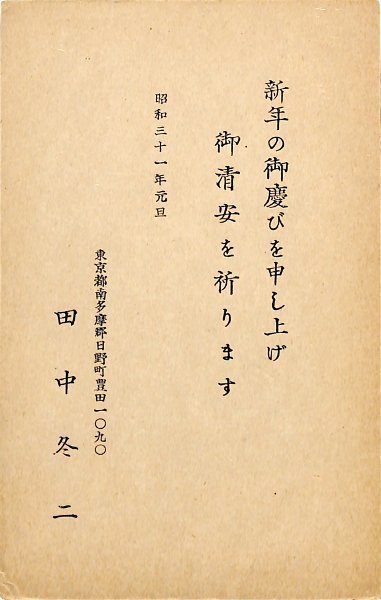 新年の御慶びを申し上げ
御清安を祈ります
昭和三十一年元旦
東京都南多摩郡日野町豊田一〇九〇
田中冬二